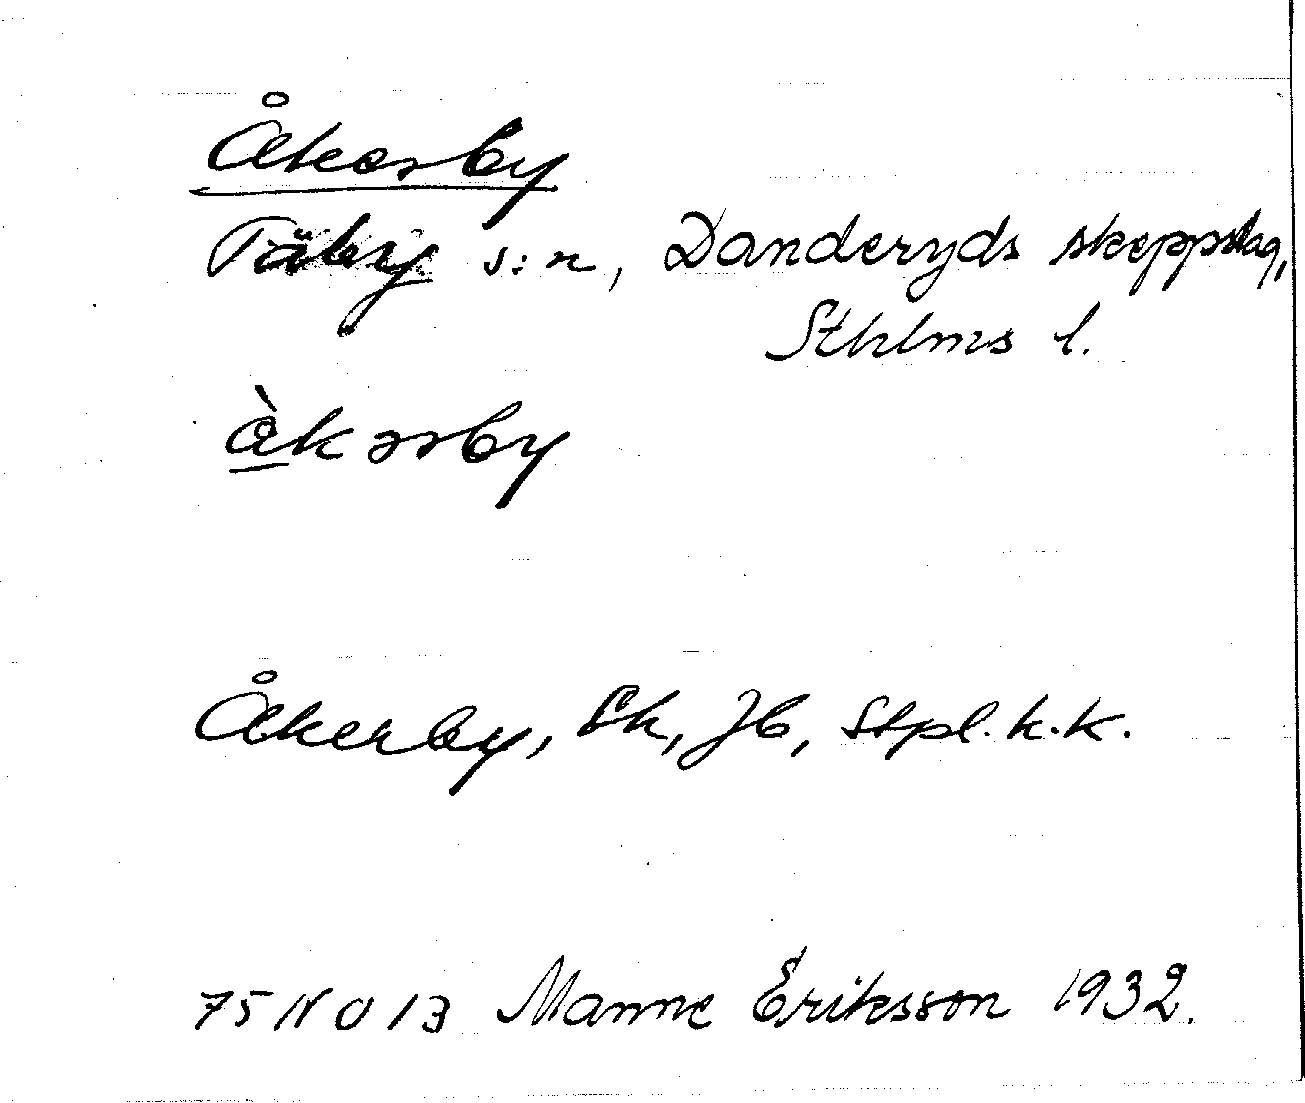 Åkerby
Täby s:n, Danderyds skeppslag,
Sthlms l.
å̀kərby
Åkerby, Ek, Jb, Stpl. k.k.
75 NO 13 Manne Eriksson 1932.